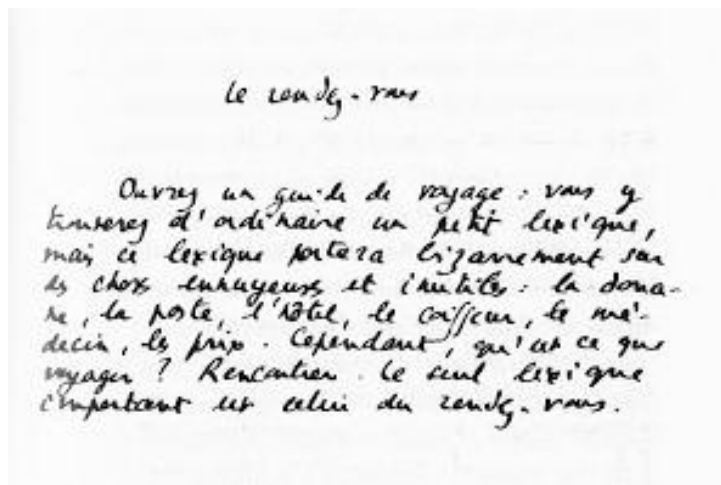 le rendez-vous
Ouvrez un guide de voyage : vous y
trouverez d'ordinaire un petit lexique,
mais ce lexique portera bizarrement sur
des choses ennuyeuses et inutiles : la doua-
ne, la poste, l'hôtel, le coiffeur, le mé-
decin, les prix. Cependant, qu'est ce que
voyager ? Rencontrer. Le seul lexique
important est celui du rendez-vous.